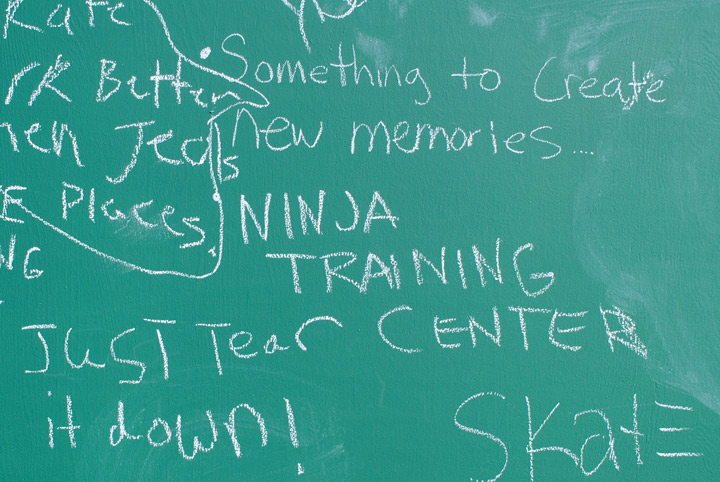 Kate
Better
Jeds
Places.
Something to Create
new memories...
NINJA
TRAINING
CENTER
JUST Tear
it down!
SKatE